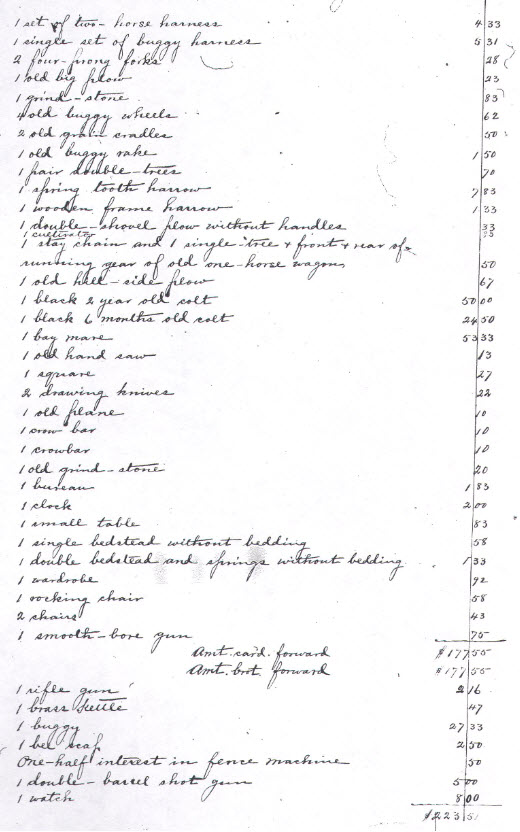 1 set of two-horse harness 4 33
1 single set of buggy harness 5 31
2 four-prong forks 28
1 old big plow 23
1 grind-stone 83
4 old buggy wheels 62
2 old grain cradles 50
1 old buggy rake 1 50
1 pair double-trees 70
1 spring tooth harrow 7 83
1 wooden frame harrow 1 33
1 double-shovel plow without handles 33
1 cultivator 25
1 stay chain and 1 single-tree & front & rear of
running gear of old one-horse wagon 50
1 old hill-side plow 67
1 black 2 year old colt 50 00
1 black 6 months old colt 24 50
1 bay mare 53 33
1 old hand saw 13
1 square 27
2 drawing knives 22
1 old plane 10
1 crow bar 10
1 crowbar 10
1 old grind-stone 20
1 bureau 1 83
1 clock 2 00
1 small table 83
1 single bedstead without bedding 58
1 double bedstead and springs without bedding 1 33
1 wardrobe 92
1 rocking chair 58
2 chairs 43
1 smooth-bore gun 75
Amt. card. forward $177 55
Amt. brot. forward $177 55
1 rifle gun 2 16
1 brass kettle 47
1 buggy 27 33
1 bee scap 2 50
One-half interest in fence machine 50
1 double-barsel shot gun 5 00
1 watch 8 00
$223 51